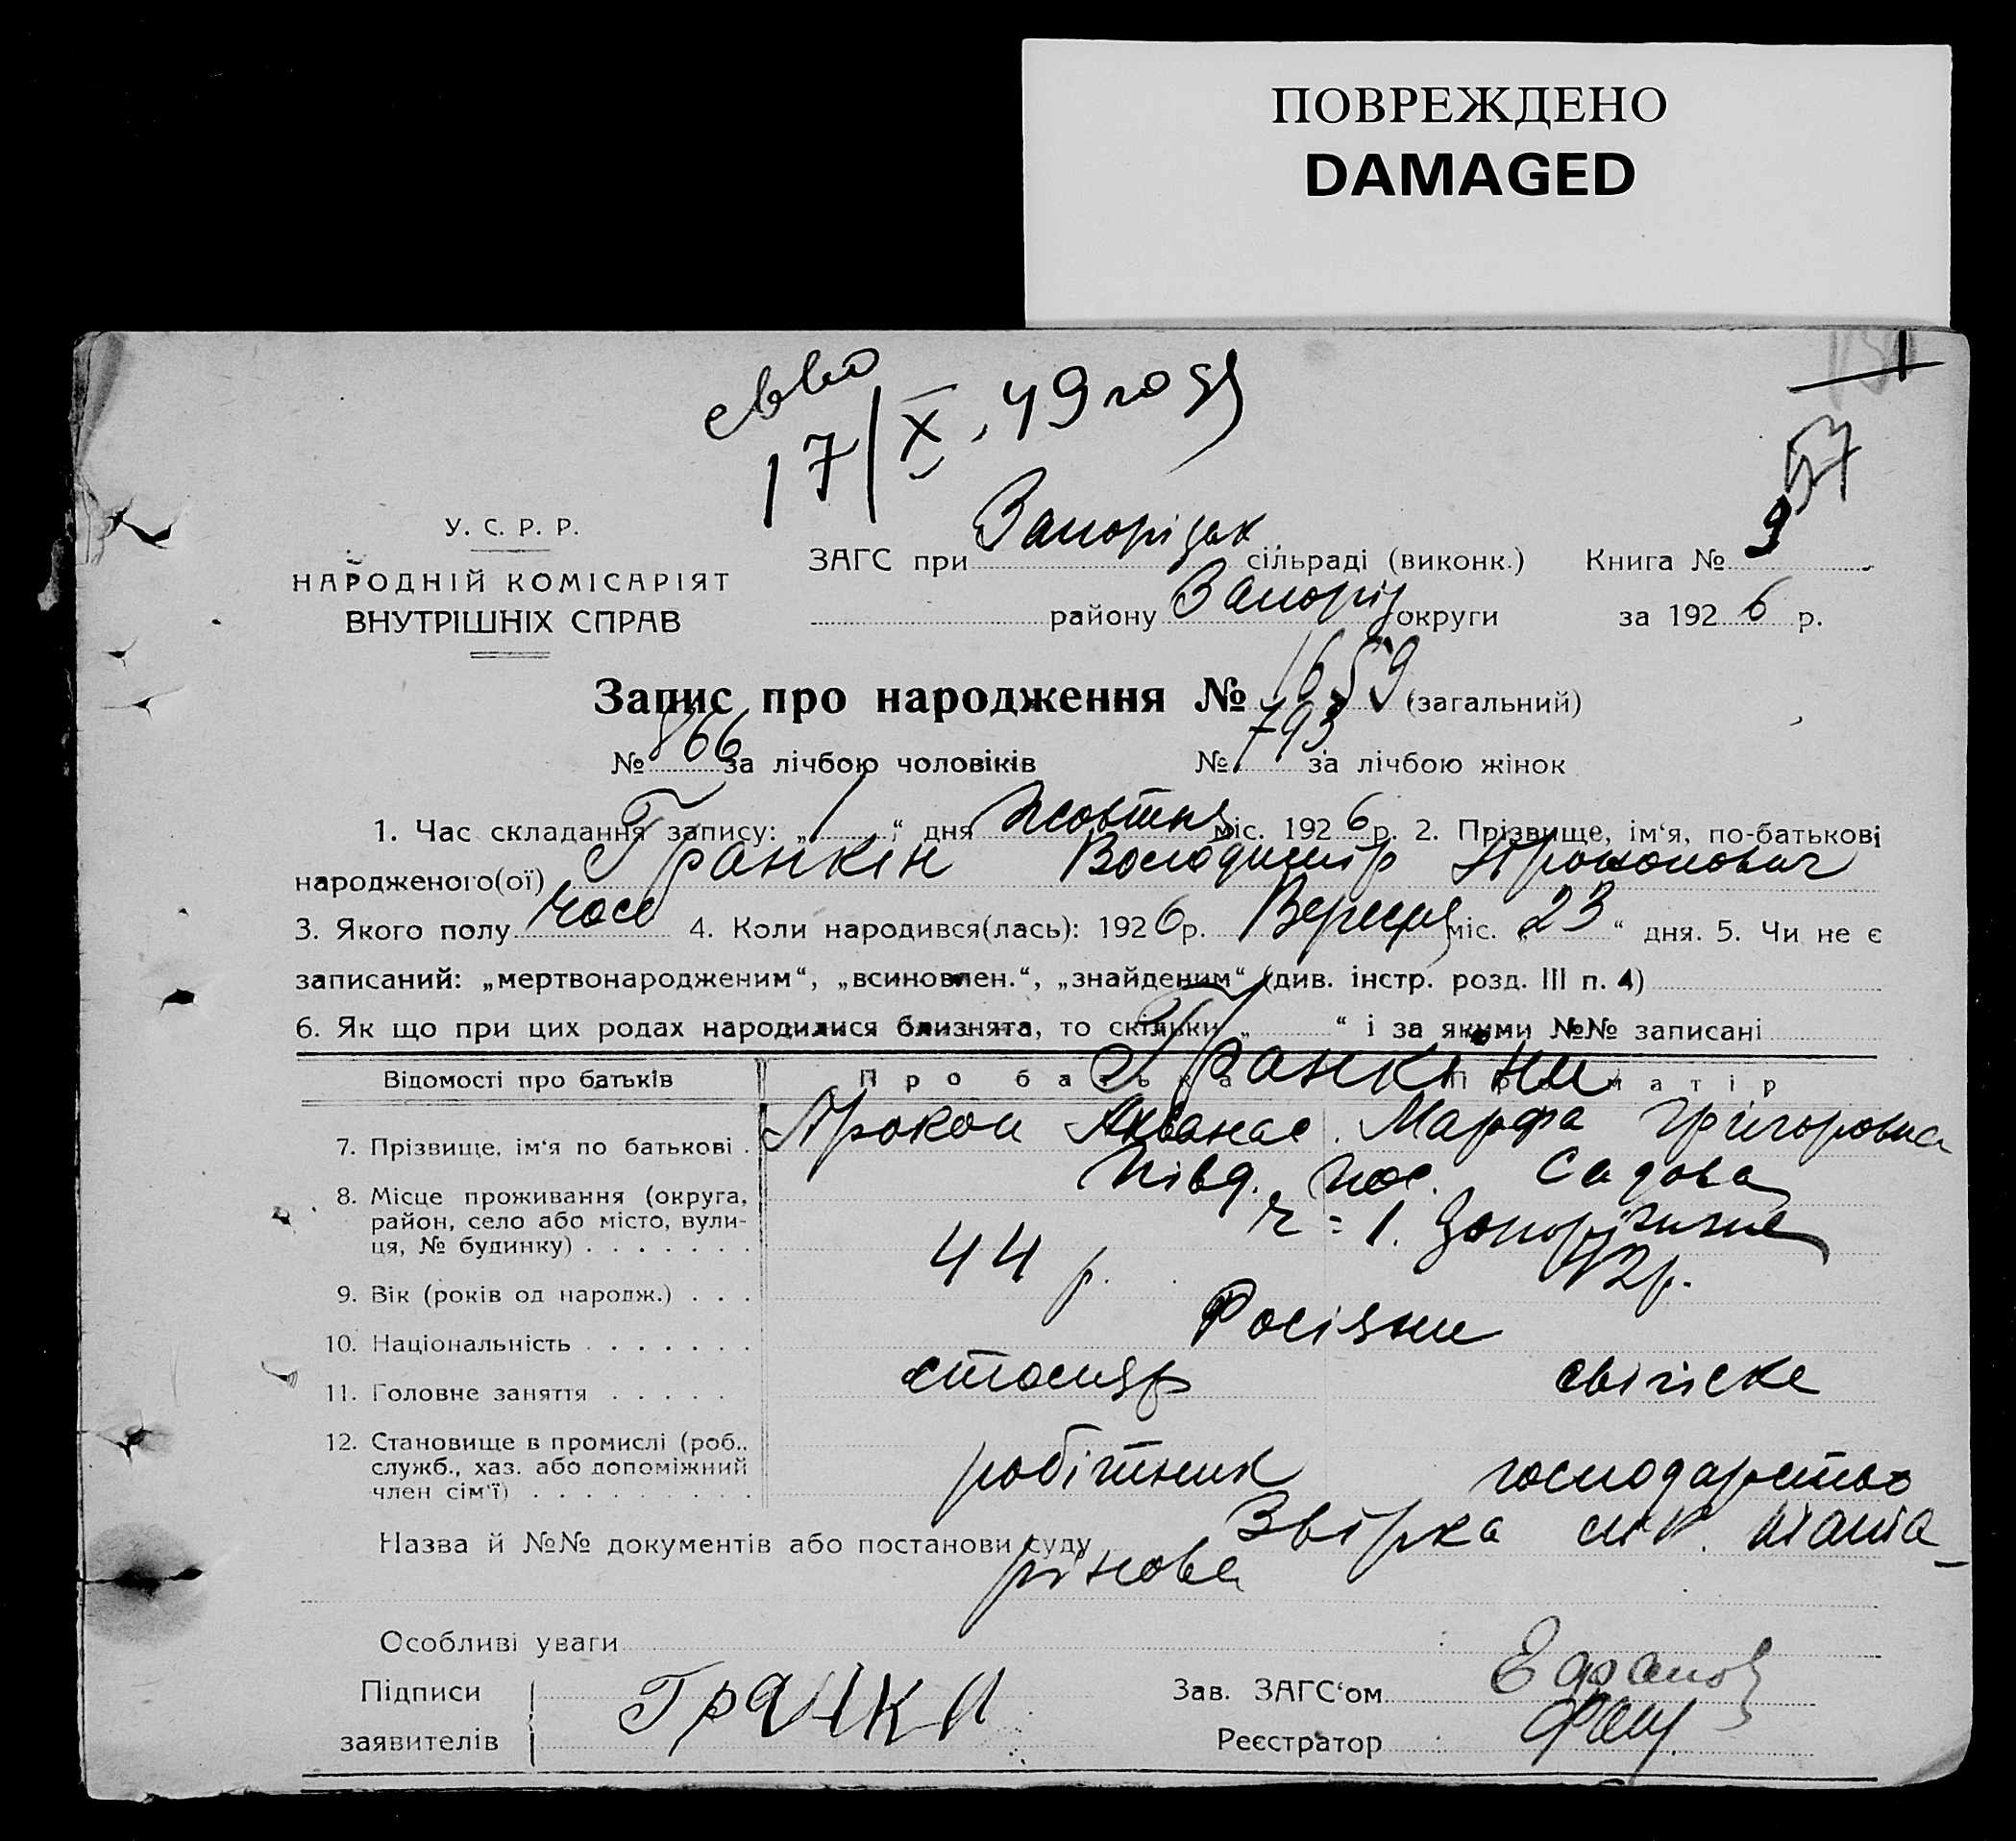 ПОВРЕЖДЕНО
DAMAGED
17/X. 49 году
57
У. С. Р. Р.
НАРОДНІЙ КОМІСАРІЯТ
ВНУТРІШНІХ СПРАВ
ЗАГС при Запорізьк сільраді (виконк.) Книга № 9
району Запоріз округи за 1926 р.
Запис про народження № 1659 (загальний)
№ 866 за лічбою чоловіків № 793 за лічбою жінок
1. Час складання запису: „ 1 “ дня Жовтня міс. 1926 р. 2. Прізвище, ім‘я, по-батькові
народженого(ої) Гранкін Володимир Прокопович
3. Якого полу чол 4. Коли народився(лась): 1926 р. Вересня міс. „ 23 “ дня. 5. Чи не є
записаний: „мертвонародженим“, „всиновлен.“, „знайденим“ (див. інстр. розд. III п. 4)
6. Як що при цих родах народилися близнята, то скільки „ “ і за якими №№ записані
Відомості про батьків Про батька Про матір
Гранкіни
7. Прізвище, ім‘я по батькові . Прокоп Афанас. Марфа Григоровна
8. Місце проживання (округа, Півд. пос. Садова
район, село або місто, вули-
ця, № будинку) . . . . . . . ч=1. Запоріжжя
9. Вік (років од народж.) . . . 44 р. 42 р.
10. Національність . . . . . . . Росіяни
11. Головне заняття . . . . . столяр свійске
12. Становище в промислі (роб.. робітник господарство
служб., хаз. або допоміжний
член сім‘ї) . . . . . . . . .
Назва й №№ документів або постанови суду Звірка
Особливі уваги
Підписи
заявителів Гранки
Зав. ЗАГС‘ом
Реєстратор